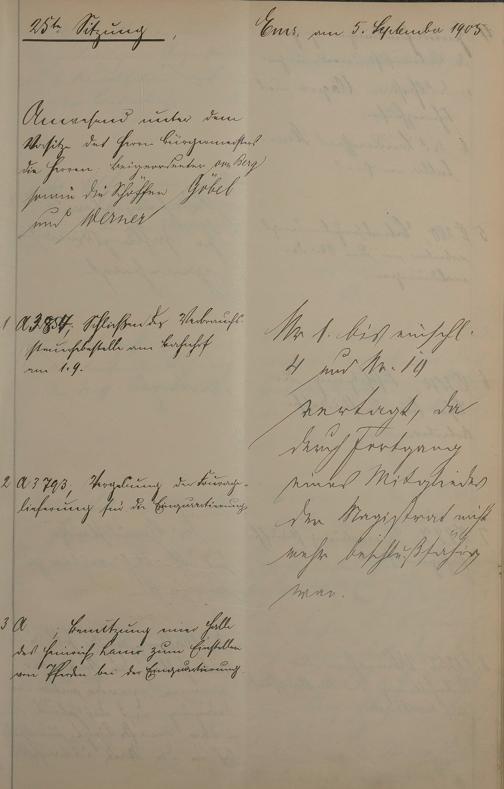 25te Sitzung,
Ems, am 5. September 1905
Anwesend unter dem
Vorsitz des Herrn Bürgermeisters
die Herren: Beigeordneter om Berg
sowie die Schöffen Göbel
und Werner
1 A 3854, Schließen der Verbrauchs-
steuerhebestelle am Bahnhof
am 1.9.
2 A 3793. Vergebung der Fourage-
lieferung für die Einquartierung
3 A ; Benutzung einer Halle
des Heinrich Kanz zum Einstellen
von Pferden bei der Einquartierung.
Nr 1. bis einschl.
4 und Nr. 10
vertagt, da
durch Fortgang
eines Mitgliedes
der Magistrat nicht
mehr beschlußfähig
war.